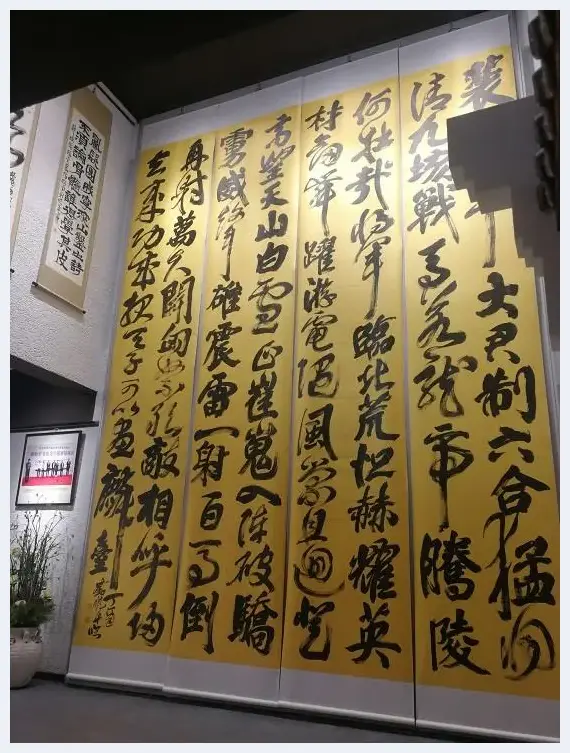 裴大君制六合猛將
清九垓戰馬若龍虎騰陵
何壯哉將軍臨北荒恒赫耀英
材劍舞躍游電隨風縈且迴登
高望天山白雲正崔嵬入陣破驕
虜威雄震雷一射百馬倒
再射萬夫開匈奴不敢敵相呼歸
去來功成報天子可以畫麟臺
論骨髓誰得學其皮